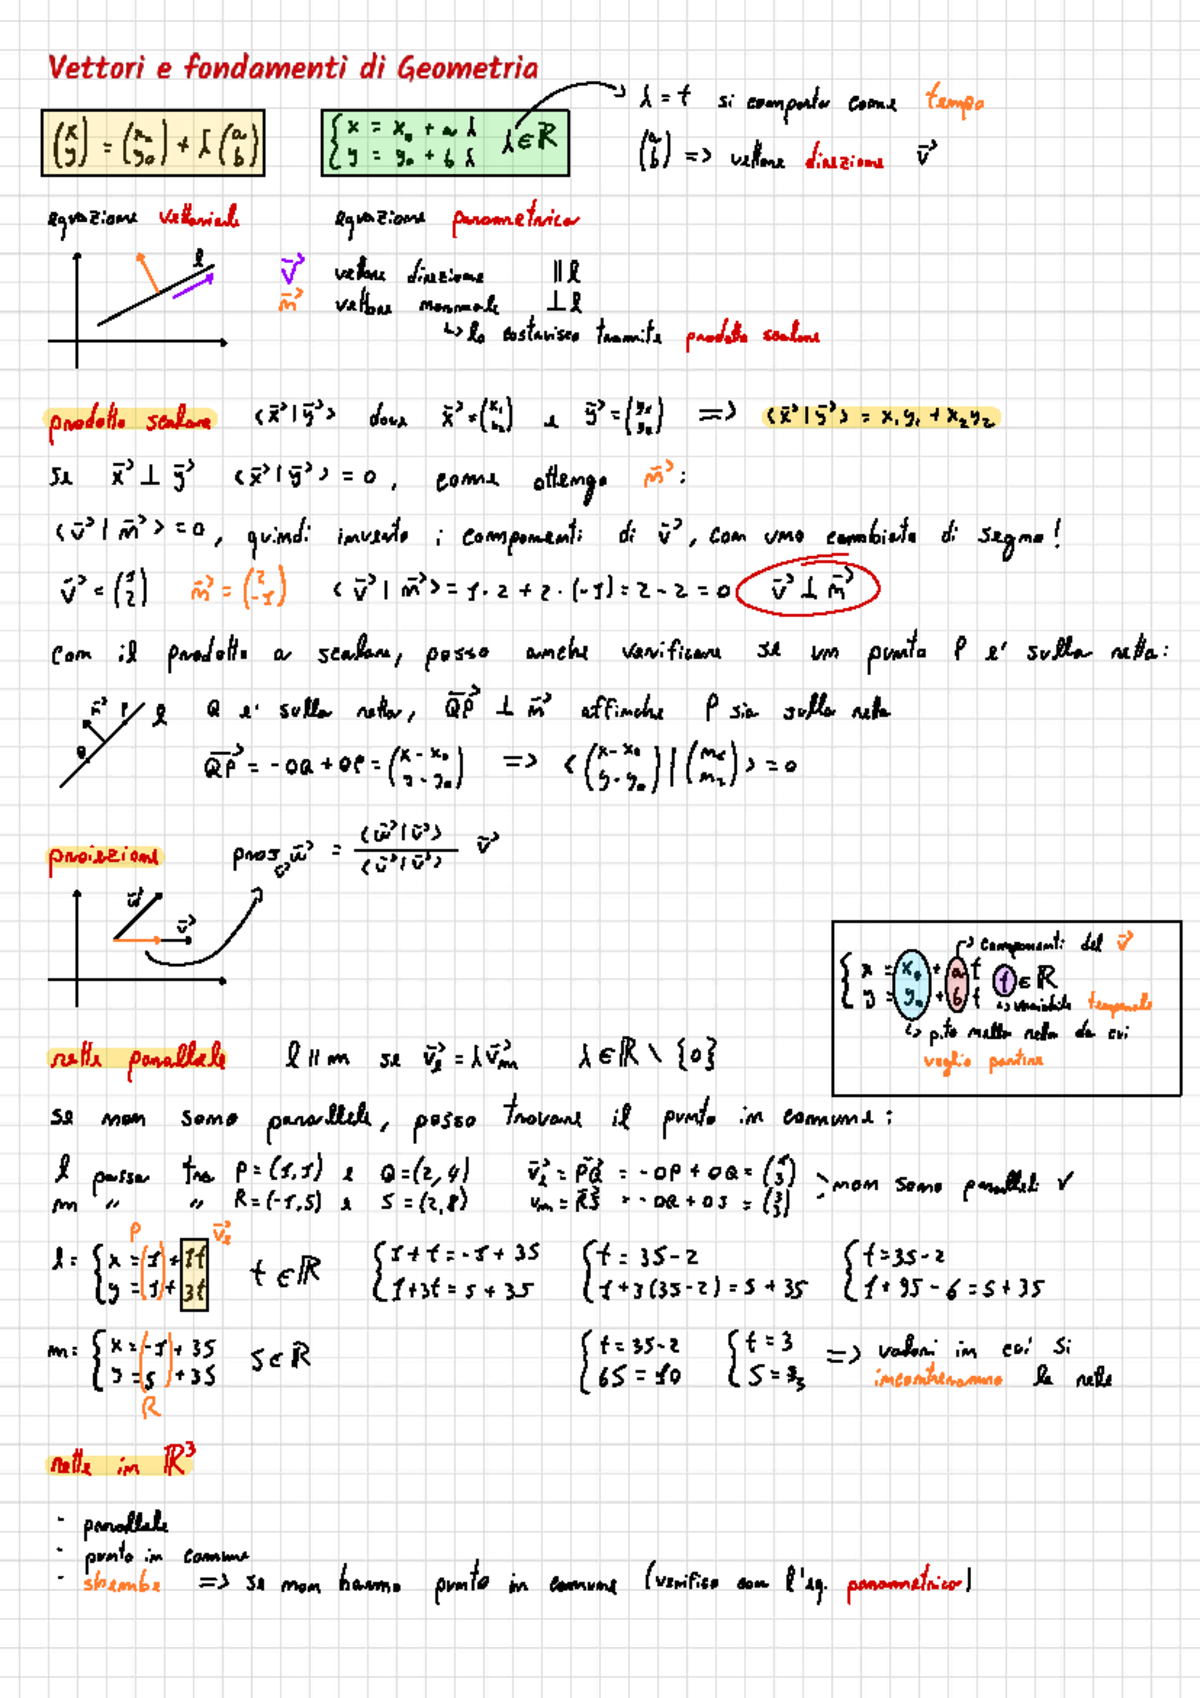 Vettori e fondamenti di Geometria
(x y) = (x₀ y₀) + λ (a b)
{ x = x₀ + a λ
y = y₀ + b λ
λ ∈ ℝ
λ = t si comporta come tempo
(a b) => vettore direzione v⃗
equazione vettoriale
equazione parametrica
l
v⃗ vettore direzione ∥ l
n⃗ vettore normale ⊥ l
↳ lo costruisco tramite prodotto scalare
prodotto scalare ⟨x⃗ | y⃗⟩ dove x⃗ = (x₁ x₂) e y⃗ = (y₁ y₂) => ⟨x⃗ | y⃗⟩ = x₁y₁ + x₂y₂
se x⃗ ⊥ y⃗ ⟨x⃗ | y⃗⟩ = 0, come ottengo n⃗:
⟨v⃗ | n⃗⟩ = 0, quindi inverto i componenti di v⃗, con uno cambiato di segno!
v⃗ = (1 2) n⃗ = (2 -1) ⟨v⃗ | n⃗⟩ = 1·2 + 2·(-1) = 2 - 2 = 0 v⃗ ⊥ n⃗
con il prodotto a scalare, posso anche verificare se un punto P e' sulla retta:
n⃗ P l
Q
Q e' sulla retta, QP⃗ ⊥ n⃗ affinche P sia sulla retta
QP⃗ = -OQ + OP = (x - x₀ y - y₀) => ⟨(x - x₀ y - y₀) | (n₁ n₂)⟩ = 0
proiezione proj v⃗ w⃗ = ⟨w⃗ | v⃗⟩ / ⟨v⃗ | v⃗⟩ v⃗
w⃗
v⃗
↱ componenti del v⃗
{ x = x₀ + a t
y = y₀ + b t
t ∈ ℝ
↳ variabile temporale
↳ p.to nella retta da cui
voglio partire
rette parallele l ∥ m se v⃗ₗ = λ v⃗ₘ λ ∈ ℝ \ {0}
se non sono parallele, posso trovare il punto in comune:
l passa tra P = (1,1) e Q = (2,4) v⃗ₗ = PQ⃗ = -OP + OQ = (1 3)
m " " R = (-1,5) e S = (2,8) vₘ = RS⃗ = -OR + OS = (3 3)
non sono paralleli ✓
P v⃗ₗ
l = { x = 1 + 1t
y = 1 + 3t
t ∈ ℝ
{ 1 + t = -1 + 3S
1 + 3t = 5 + 3S
{ t = 3S - 2
1 + 3(3S - 2) = 5 + 3S
{ t = 3S - 2
1 + 9S - 6 = 5 + 3S
m = { x = -1 + 3S
y = 5 + 3S
S ∈ ℝ
R
{ t = 3S - 2
6S = 10
{ t = 3
S = 5/3
=> valori in cui si
incontreranno le rette
rette in ℝ³
- parallele
- punto in comune
- sbembe => se non hanno punto in comune (verifico con l'eq. parametrica)